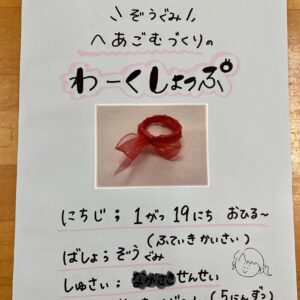 ぞうぐみ
へあごむづくりの
わーくしょっぷ
にちじ；1がつ19にち おひる～
(ふていきかいさい)
ばしょ；ぞうぐみ
しゅさい； せんせい
(5にんずつ)